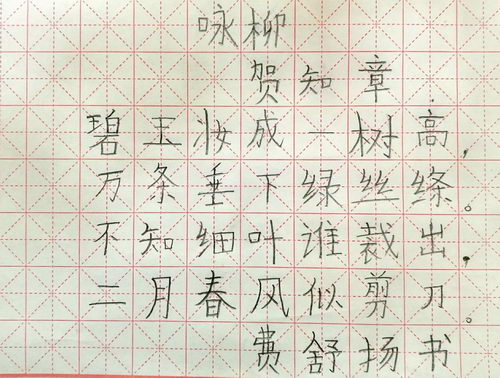 咏柳
贺知章
碧玉妆成一树高，
万条垂下绿丝绦。
不知细叶谁裁出，
二月春风似剪刀。
费舒扬书